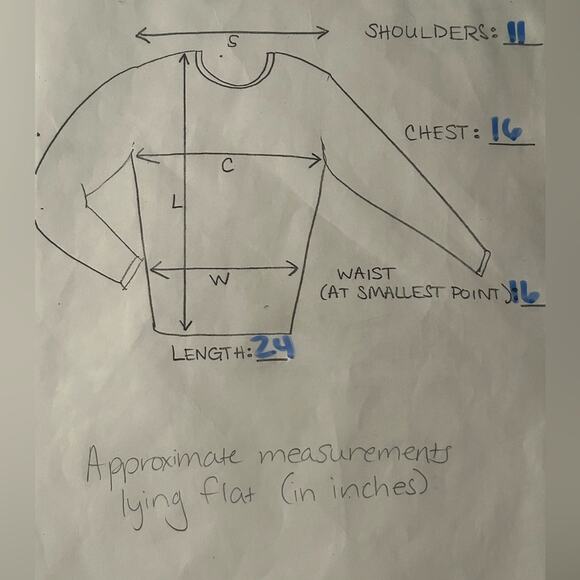 S
SHOULDERS: 11
CHEST: 16
C
L
WAIST
(AT SMALLEST POINT): 16
W
LENGTH: 24
Approximate measurements
lying flat (in inches)